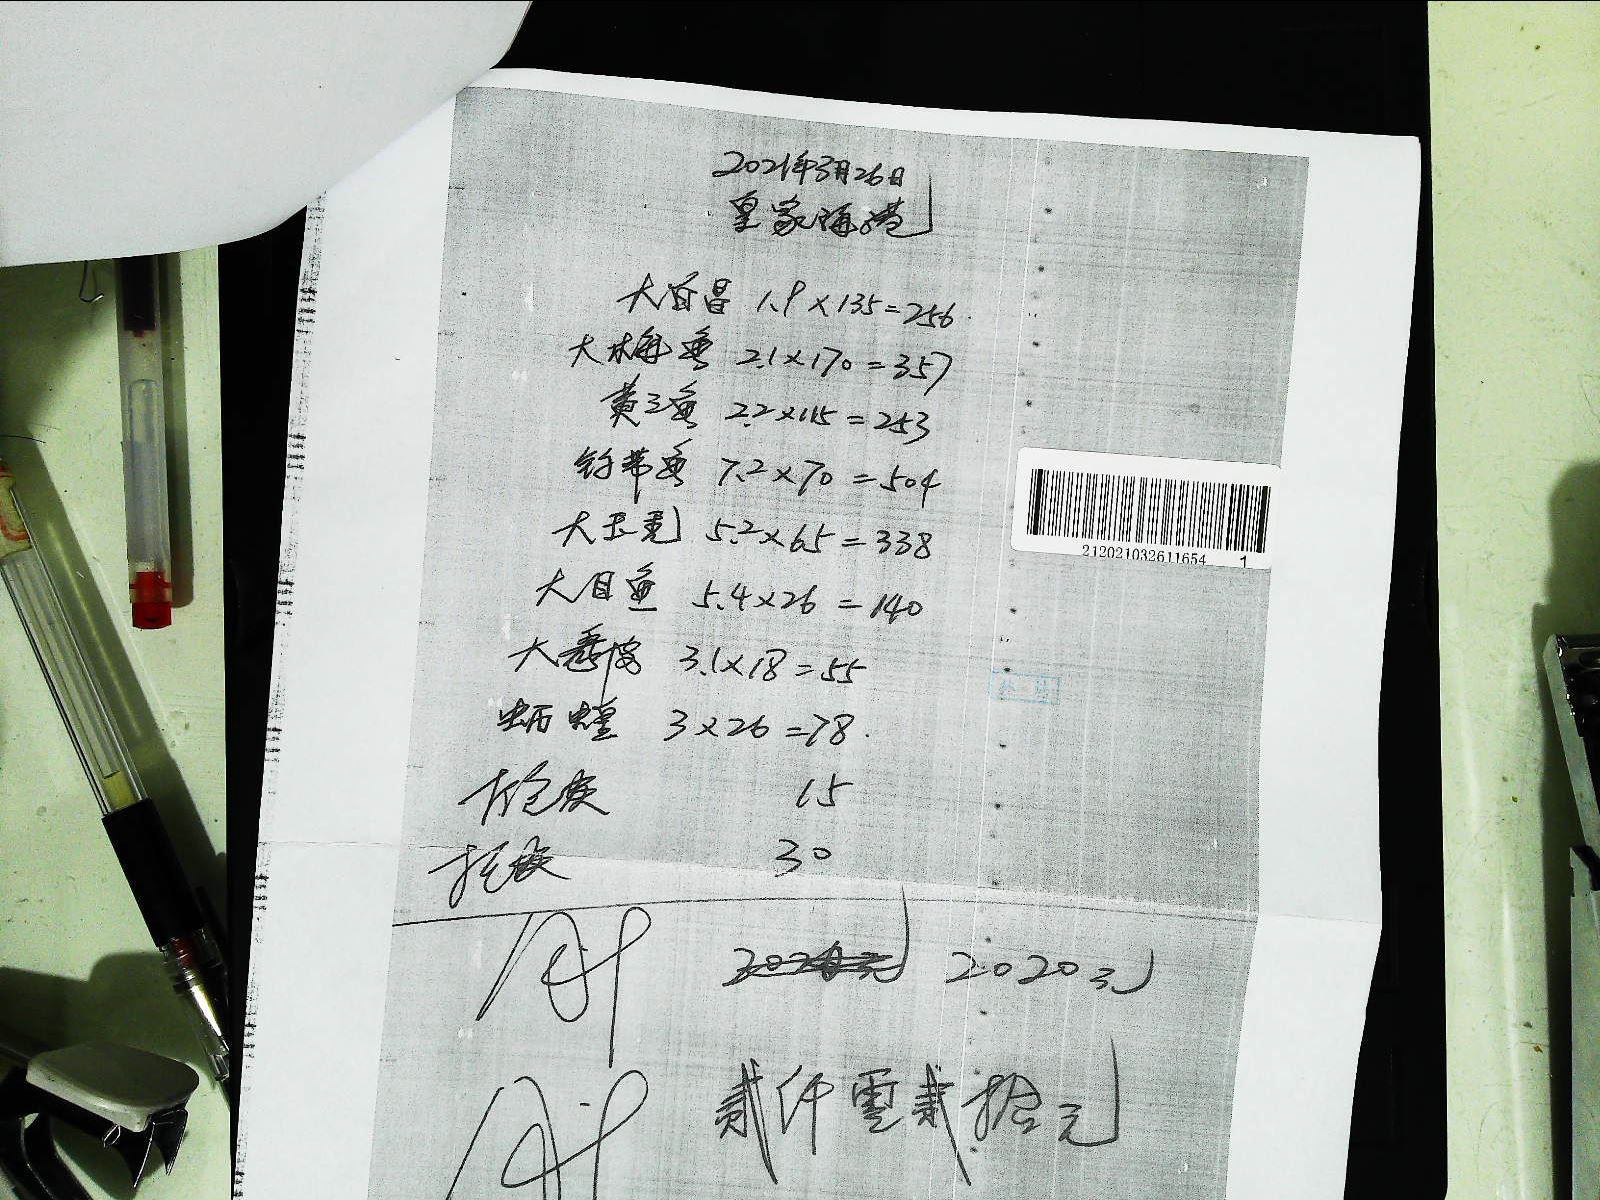 2021年3月26日
皇家海港
大白昌 1.9×135=256
大梅鱼 2.1×170=357
黄三鱼 2.2×115=253
钓带鱼 7.2×70=504
大玉秃 5.2×65=338
大目鱼 5.4×26=140
大 3.1×18=55
3×26=78
15
30
2020元
贰仟零贰拾元
212021032611654 1